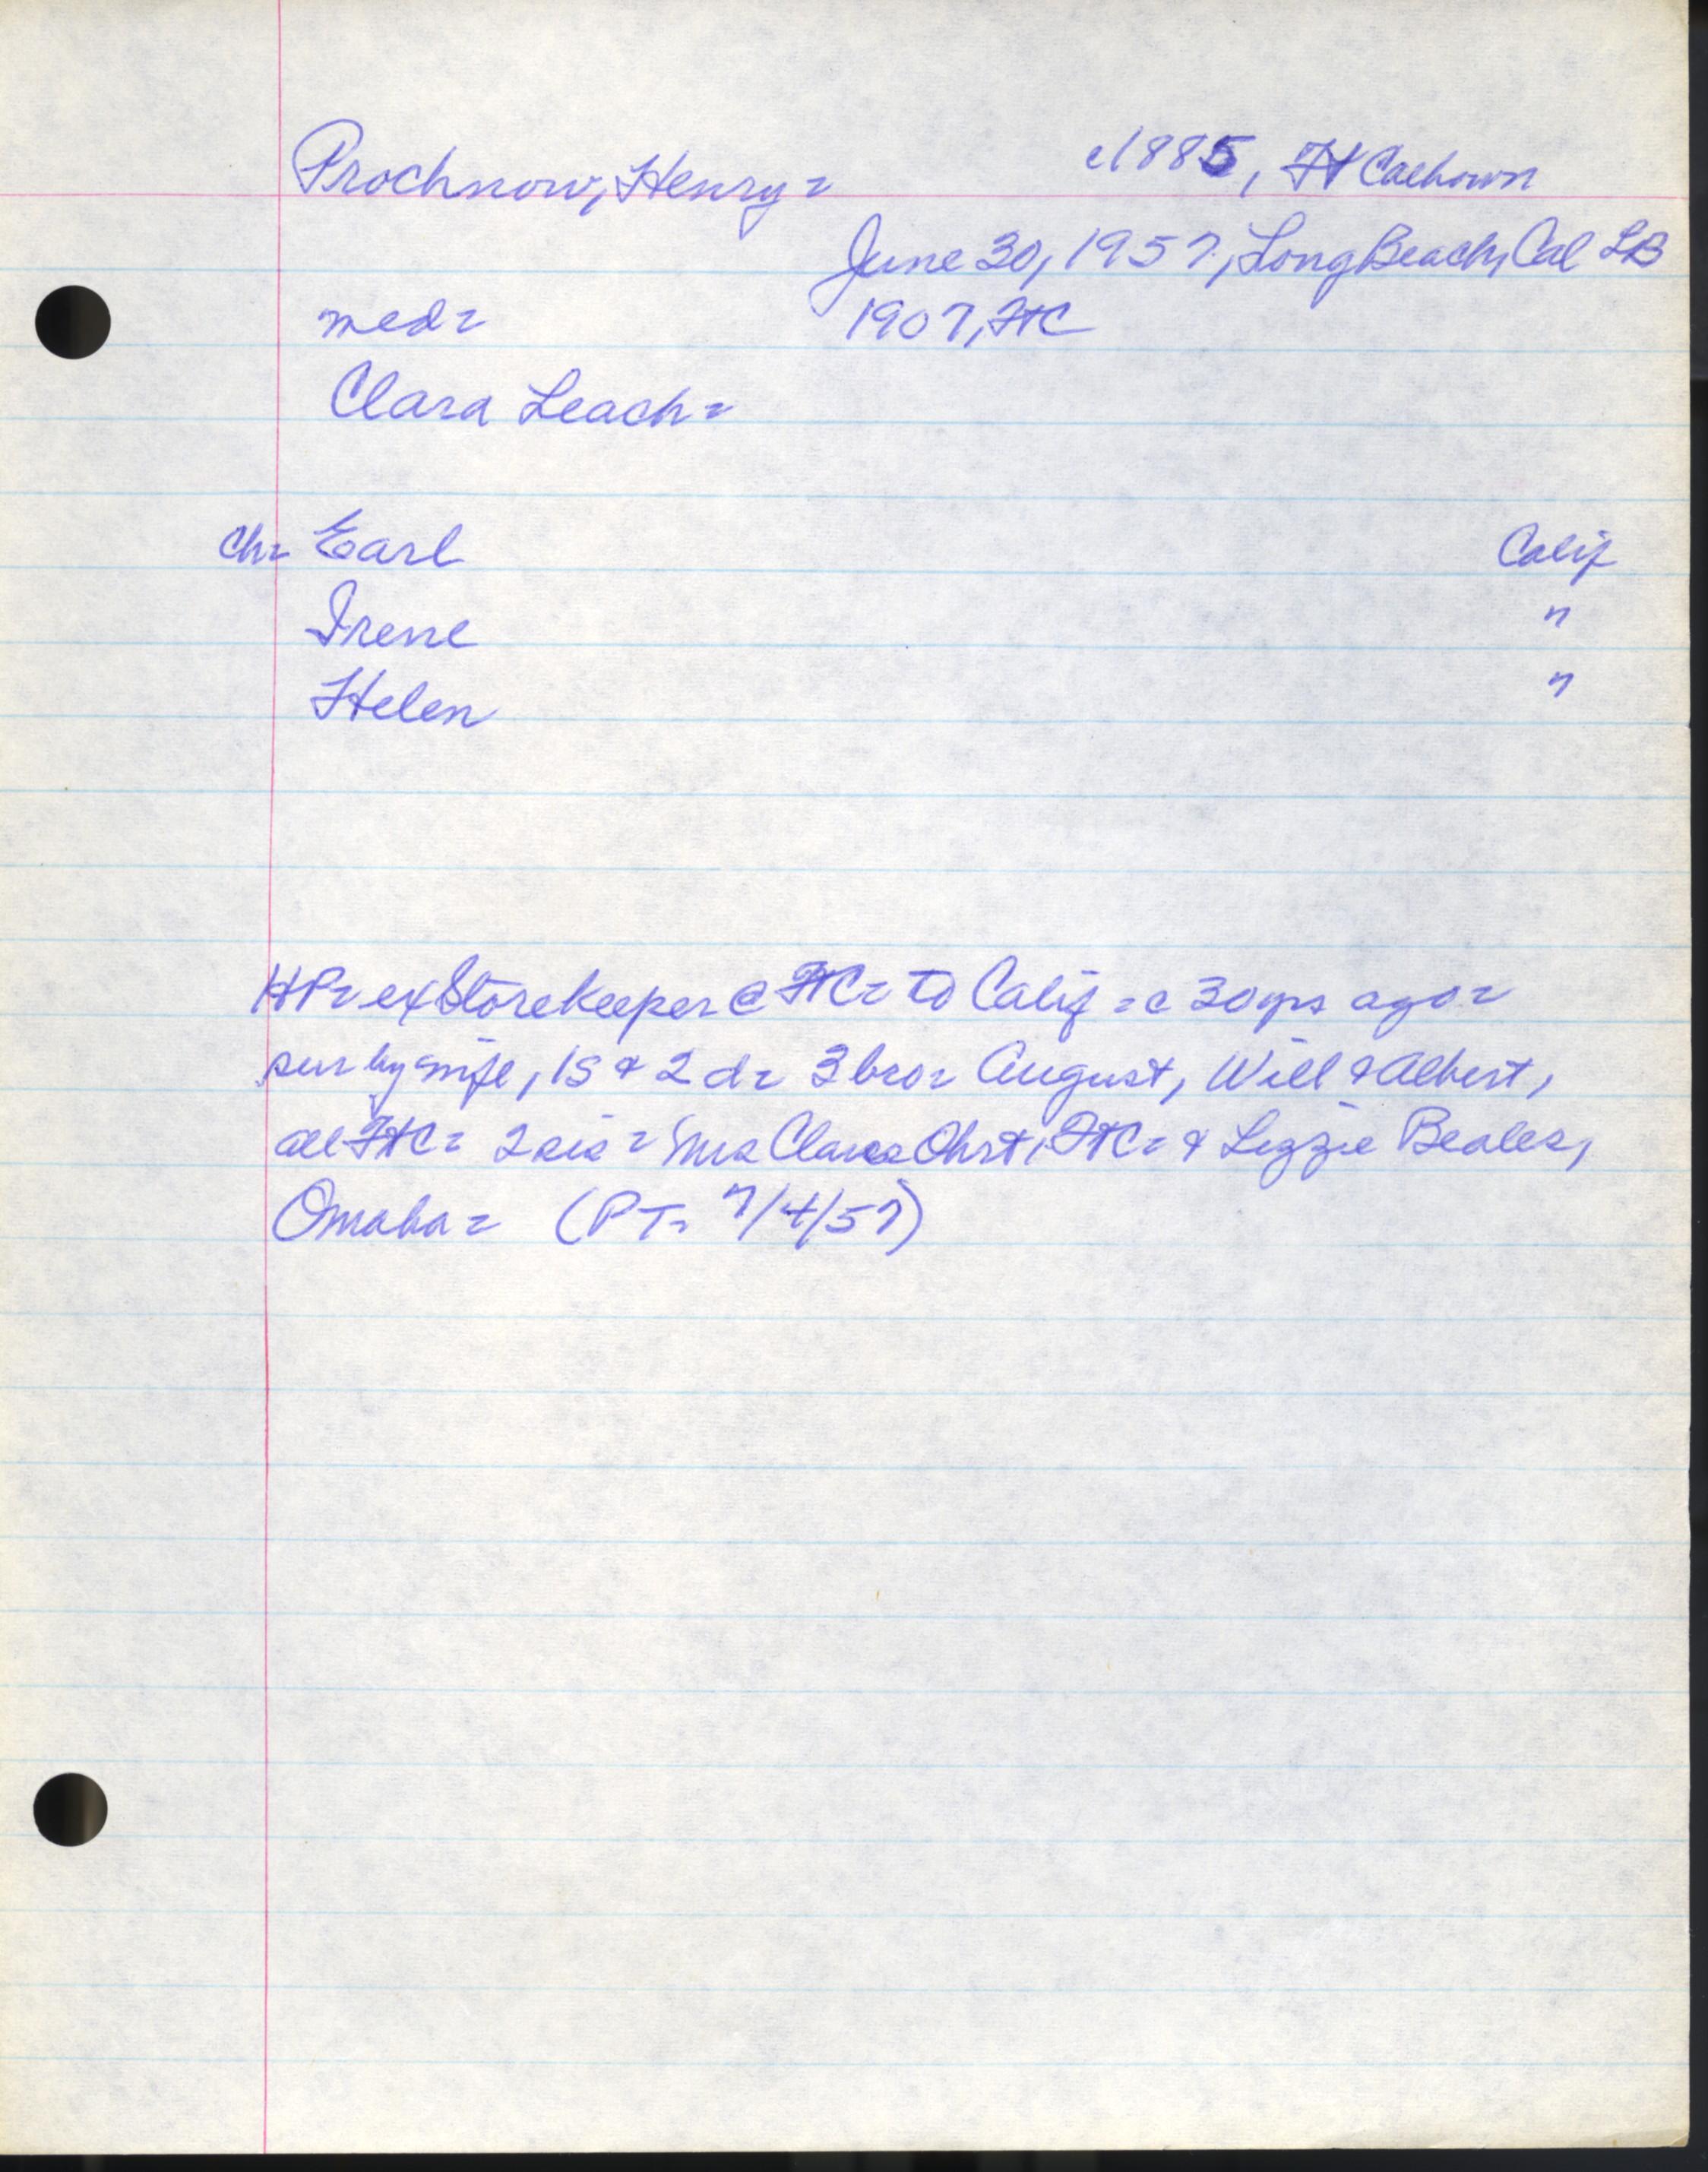 Prochnow, Henry = c1885, Ft Calhoun
June 30, 1957, Long Beach, Cal LB
med = 1907, FtC
Clara Leach =
Ch = Earl Calif
Irene "
Helen "
HP = ex Storekeeper @ FtC = to Calif = c 30 yrs ago =
sur by wife, 1S & 2 d = 3 bro = August, Will & Albert,
all FtC = 2 sis = Mrs Clara Ohrt, FtC = & Lizzie Beales,
Omaha = (PT = 7/4/57)